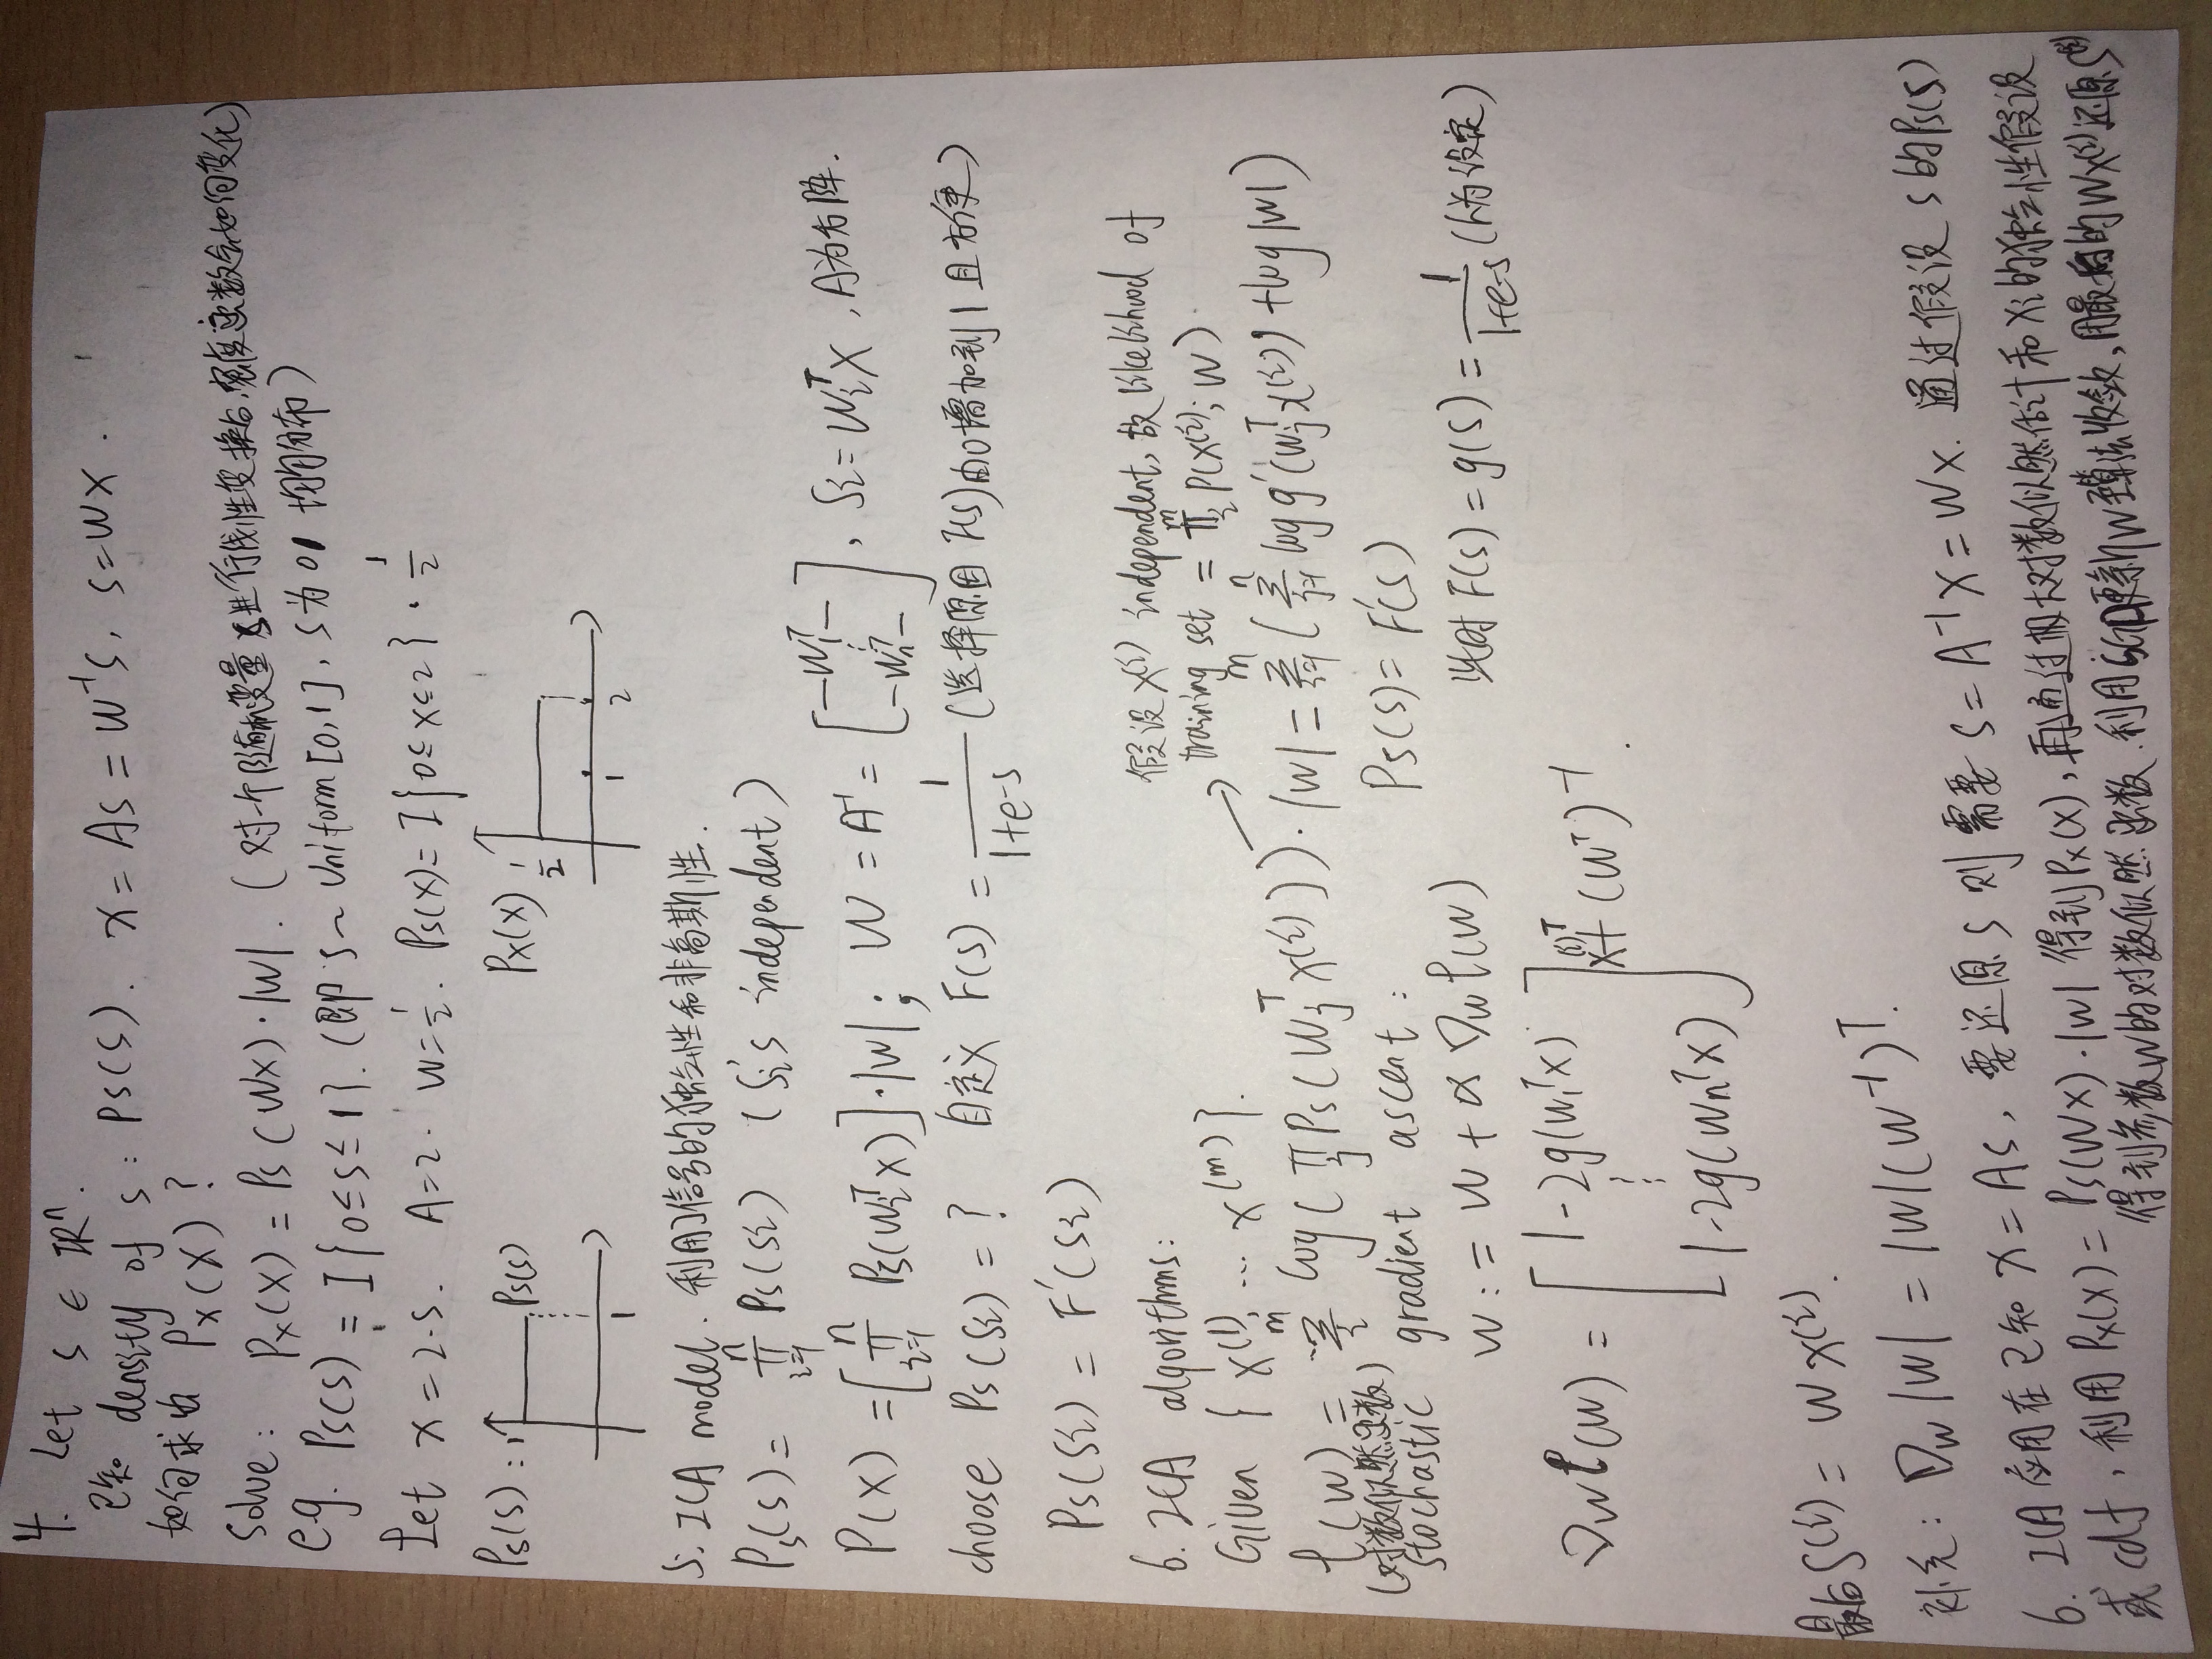 4. Let s ∈ IRⁿ.
已知 density of s : Ps(s). x = As = W⁻¹s, s=Wx.
如何求出 Px(x) ?
Solve : Px(x) = Ps(Wx)·|W|. (对一个随机变量s进行线性变换后,密度函数会如何变化)
e.g. Ps(s) = I{0≤s≤1}. (即 s ~ Uniform[0,1], s为01均匀分布)
Let x=2·s. A=2. W=1/2. Ps(x)=I{0≤x≤2}·1/2
Ps(s) : 1 Ps(s) Px(x) 1/2
1 1 2
5. ICA model. 利用了信号的独立性和非高斯性.
Ps(s) = ∏_{i=1}^{n} Ps(si) (si's independent)
P(x) = [∏_{i=1}^{n} Ps(Wiᵀx)]·|W| ; W = A⁻¹ = [—W₁ᵀ— ⋮ —Wnᵀ—], Si=Wiᵀx, A为方阵.
choose Ps(si) = ? 自定义 F(s) = 1/(1+e-s) (选择原因 F(s)由0增加到1且方便)
Ps(si) = F'(si)
6. ICA algorithms:
假设x⁽ⁱ⁾ independent, 故 likelihood of
training set = ∏_{i}^{m} P(x⁽ⁱ⁾; W).
Given { x⁽¹⁾, ... x⁽ᵐ⁾}.
ℓ(W) = ∑_{i}^{m} log(∏_{j} Ps(Wjᵀx⁽ⁱ⁾))·|W| = ∑_{i=1}^{m}(∑_{j=1}^{n} log g'(wjᵀx⁽ⁱ⁾) + log|W|)
(对数似然函数)
Ps(s) = F'(s)
stochastic gradient ascent :
W := W + α ∇w ℓ(W)
此时 F(s) = g(s) = 1/(1+e-s) (人为设定)
∇w ℓ(W) = [1-2g(W₁ᵀx) ⋮ 1-2g(Wnᵀx)] x⁽ⁱ⁾ᵀ + (Wᵀ)⁻¹.
最后 S⁽ⁱ⁾ = W x⁽ⁱ⁾.
补充: ∇w|W| = |W|(W⁻¹)ᵀ.
6. ICA应用在已知 x=As, 要还原s 则需要 s=A⁻¹x=Wx. 通过假设 s的Ps(s)
或cdf, 利用 Px(x) = Ps(Wx)·|W| 得到Px(x), 再通过极大对数似然估计和xi的独立性假设
得到参数W的对数似然函数.利用SGD更新W至算法收敛,用最后的Wx⁽ⁱ⁾还原S⁽ⁱ⁾